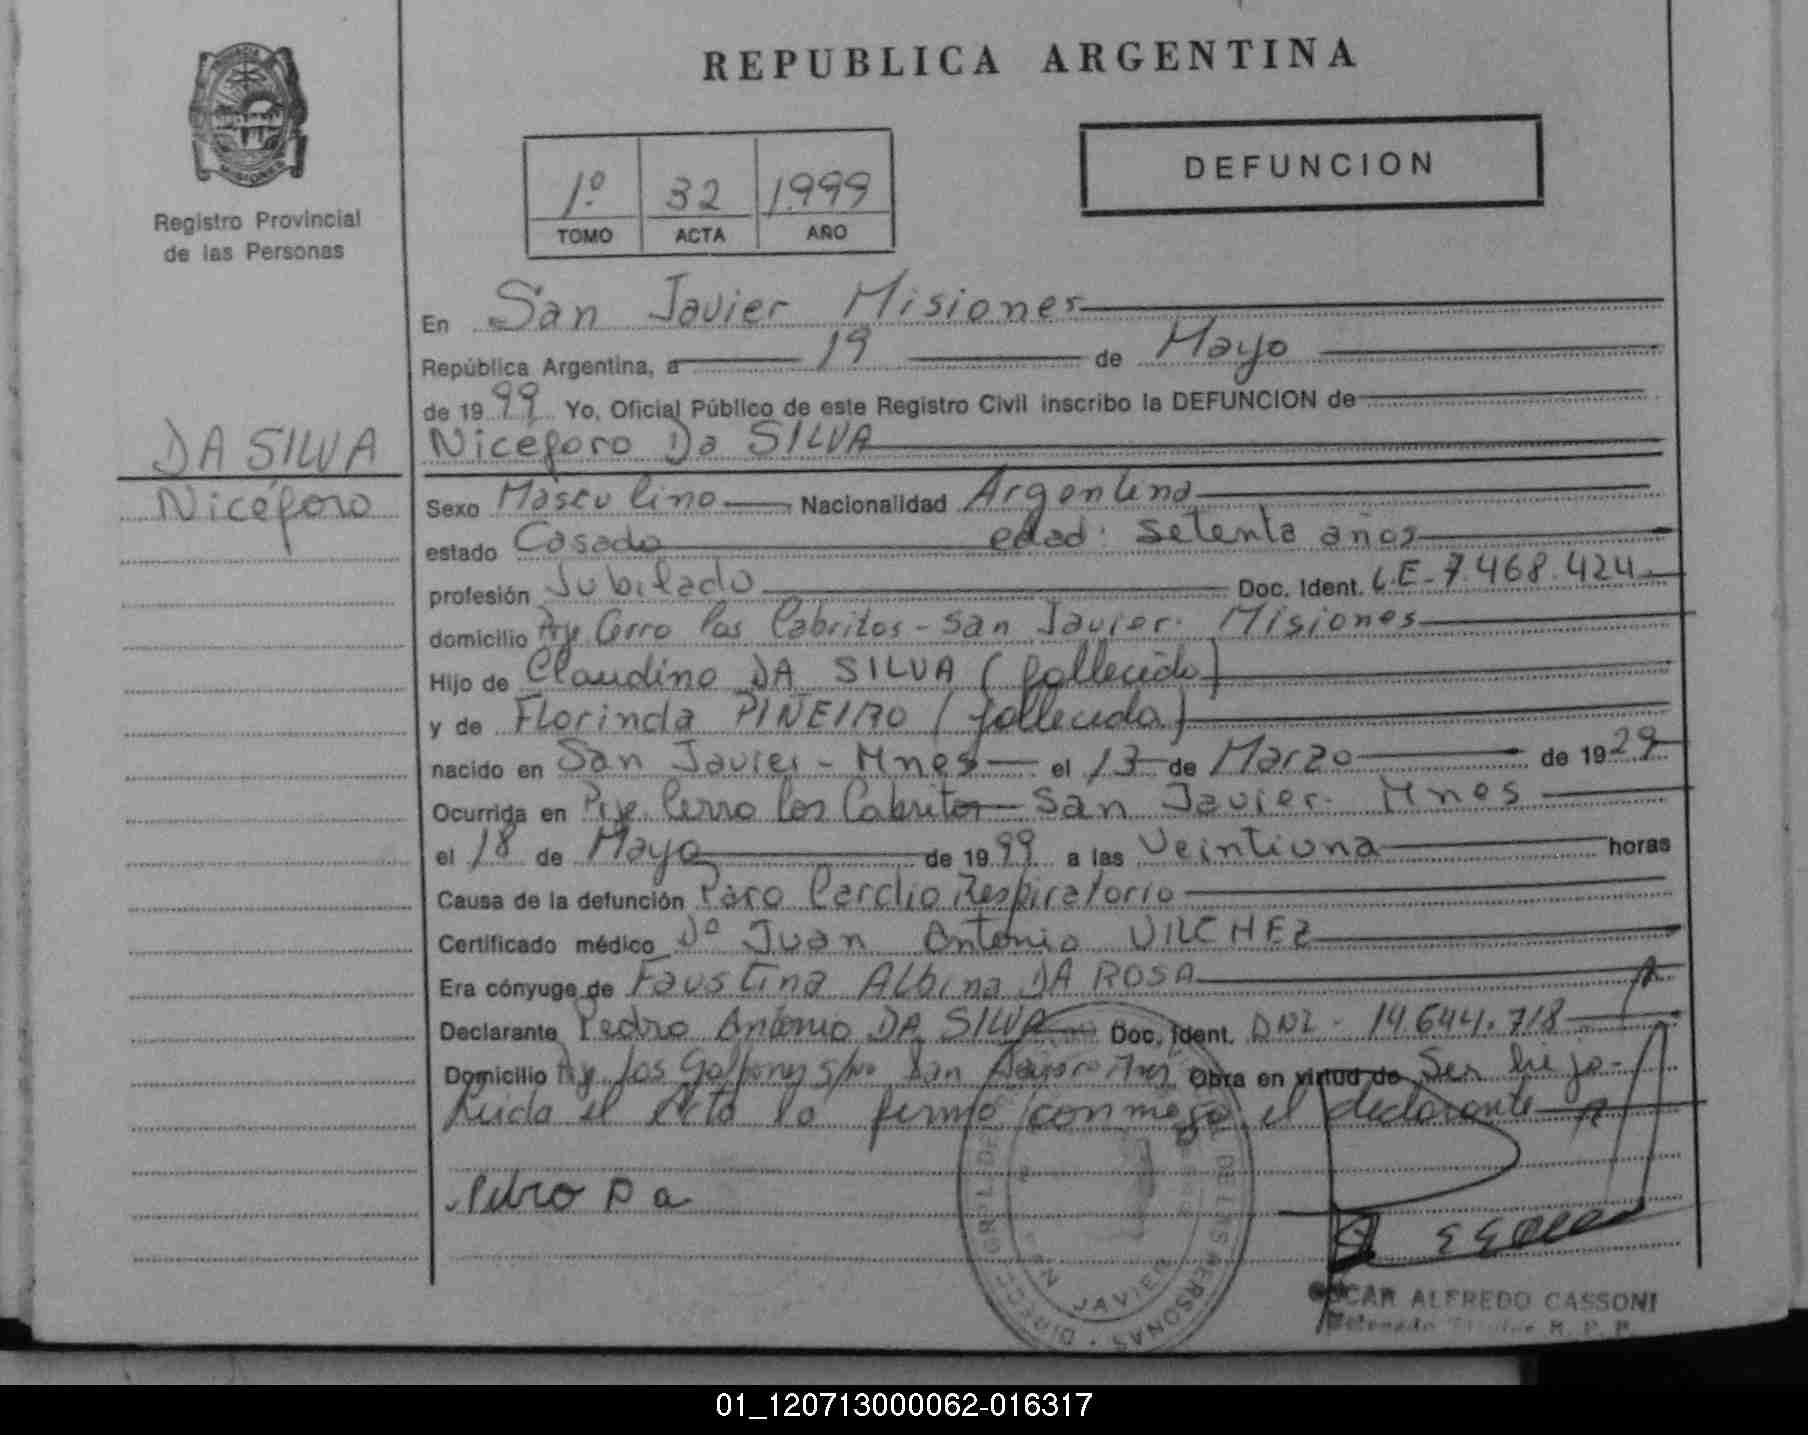 REPUBLICA ARGENTINA
PROVINCIA
MISIONES
Registro Provincial
de las Personas
1º 32 1999
TOMO ACTA AÑO
DEFUNCION
En San Javier Misiones
República Argentina, a 19 de Mayo
de 1999 Yo, Oficial Público de este Registro Civil inscribo la DEFUNCION de
Nicéforo Da SILVA
DA SILVA
Nicéforo
Sexo Masculino Nacionalidad Argentina
estado Casado edad: setenta años
profesión Jubilado Doc. Ident. L.E. 7.468.424
domicilio Pje Cerro Los Cabritos - San Javier. Misiones
Hijo de Claudino DA SILVA (fallecido)
y de Florinda PIÑEIRO (fallecida)
nacido en San Javier - Mnes el 13 de Marzo de 1929
Ocurrida en Pje. Cerro Los Cabritos San Javier. Mnes
el 18 de Mayo de 1999 a las Veintiuna horas
Causa de la defunción Paro Cardio Respiratorio
Certificado médico Dº Juan Antonio VILCHEZ
Era cónyuge de Faustina Albina DA ROSA
Declarante Pedro Antonio DA SILVA Doc. Ident. DNI - 14.644.718
Domicilio Pje Los Galpones s/nº San Javier Mnes Obra en virtud de Ser hijo-
Leida el Acta la firma conmigo el declarante
Pedro Da
SAN JAVIER
DE LAS PERSONAS
OSCAR ALFREDO CASSONI
Delegado Titular R. P. P.
01_120713000062-016317